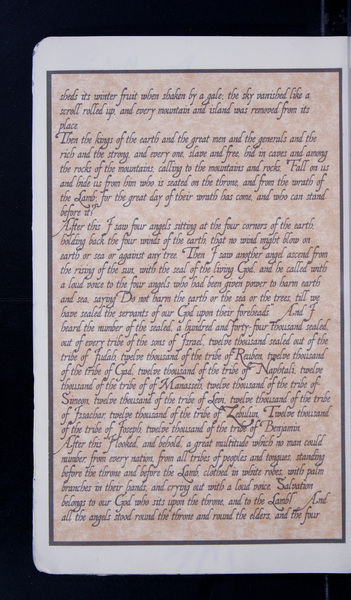 sheds its winter fruit when shaken by a gale; the sky vanished like a
scroll rolled up, and every mountain and island was removed from its
place.
Then the kings of the earth and the great men and the generals and the
rich and the strong, and every one, slave and free, hid in caves and among
the rocks of the mountains, calling to the mountains and rocks, "Fall on us
and hide us from him who is seated on the throne, and from the wrath of
the Lamb; for the great day of their wrath has come, and who can stand
before it?"
After this I saw four angels sitting at the four corners of the earth,
holding back the four winds of the earth, that no wind might blow on
earth or sea or against any tree. Then I saw another angel ascend from
the rising of the sun, with the seal of the living God, and he called with
a loud voice to the four angels who had been given power to harm earth
and sea, saying "Do not harm the earth or the sea or the trees, till we
have sealed the servants of our God upon their foreheads." And I
heard the number of the sealed, a hundred and forty-four thousand sealed,
out of every tribe of the sons of Israel, twelve thousand sealed out of the
tribe of Judah, twelve thousand of the tribe of Reuben, twelve thousand
of the tribe of Gad, twelve thousand of the tribe of Naphtali, twelve
thousand of the tribe of of Manasseh, twelve thousand of the tribe of
Simeon, twelve thousand of the tribe of Levi, twelve thousand of the tribe
of Issachar, twelve thousand of the tribe of Zebulun, Twelve thousand
of the tribe of Joseph, twelve thousand of the tribe of Benjamin.
After this I looked, and behold, a great multitude which no man could
number, from every nation, from all tribes of peoples and tongues, standing
before the throne and before the Lamb, clothed in white robes, with palm
branches in their hands, and crying out with a loud voice, "Salvation
belongs to our God who sits upon the throne, and to the Lamb!" And
all the angels stood round the throne and round the elders, and the four